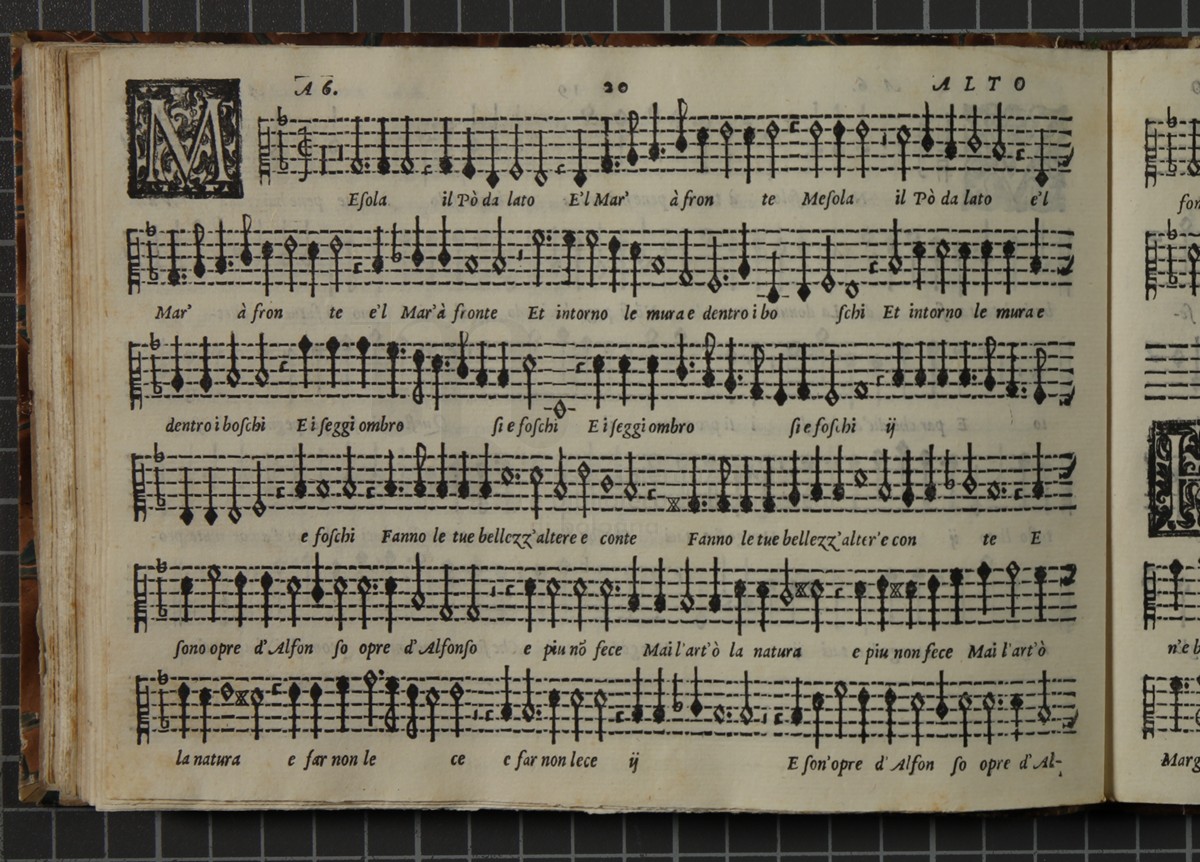 A 6. 20 ALTO
M Eſola il Pò da lato E'l Mar' à fron te Meſola il Pò da lato e'l
Mar' à fron te e'l Mar'à fronte Et intorno le mura e dentro i bo ſchi Et intorno le mura e
dentro i boſchi E i ſeggi ombro ſi e foſchi E i ſeggi ombro ſi e foſchi ij
e foſchi Fanno le tue bellezz'altere e conte Fanno le tue bellezz'alter'e con te E
ſono opre d'Alfon ſo opre d'Alfonſo e piu nõ fece Mai l'art'ò la natura e piu non fece Mai l'art'ò
la natura e far non le ce e far non lece ij E ſon'opre d'Alfon ſo opre d'Al-
n'e b
Marg